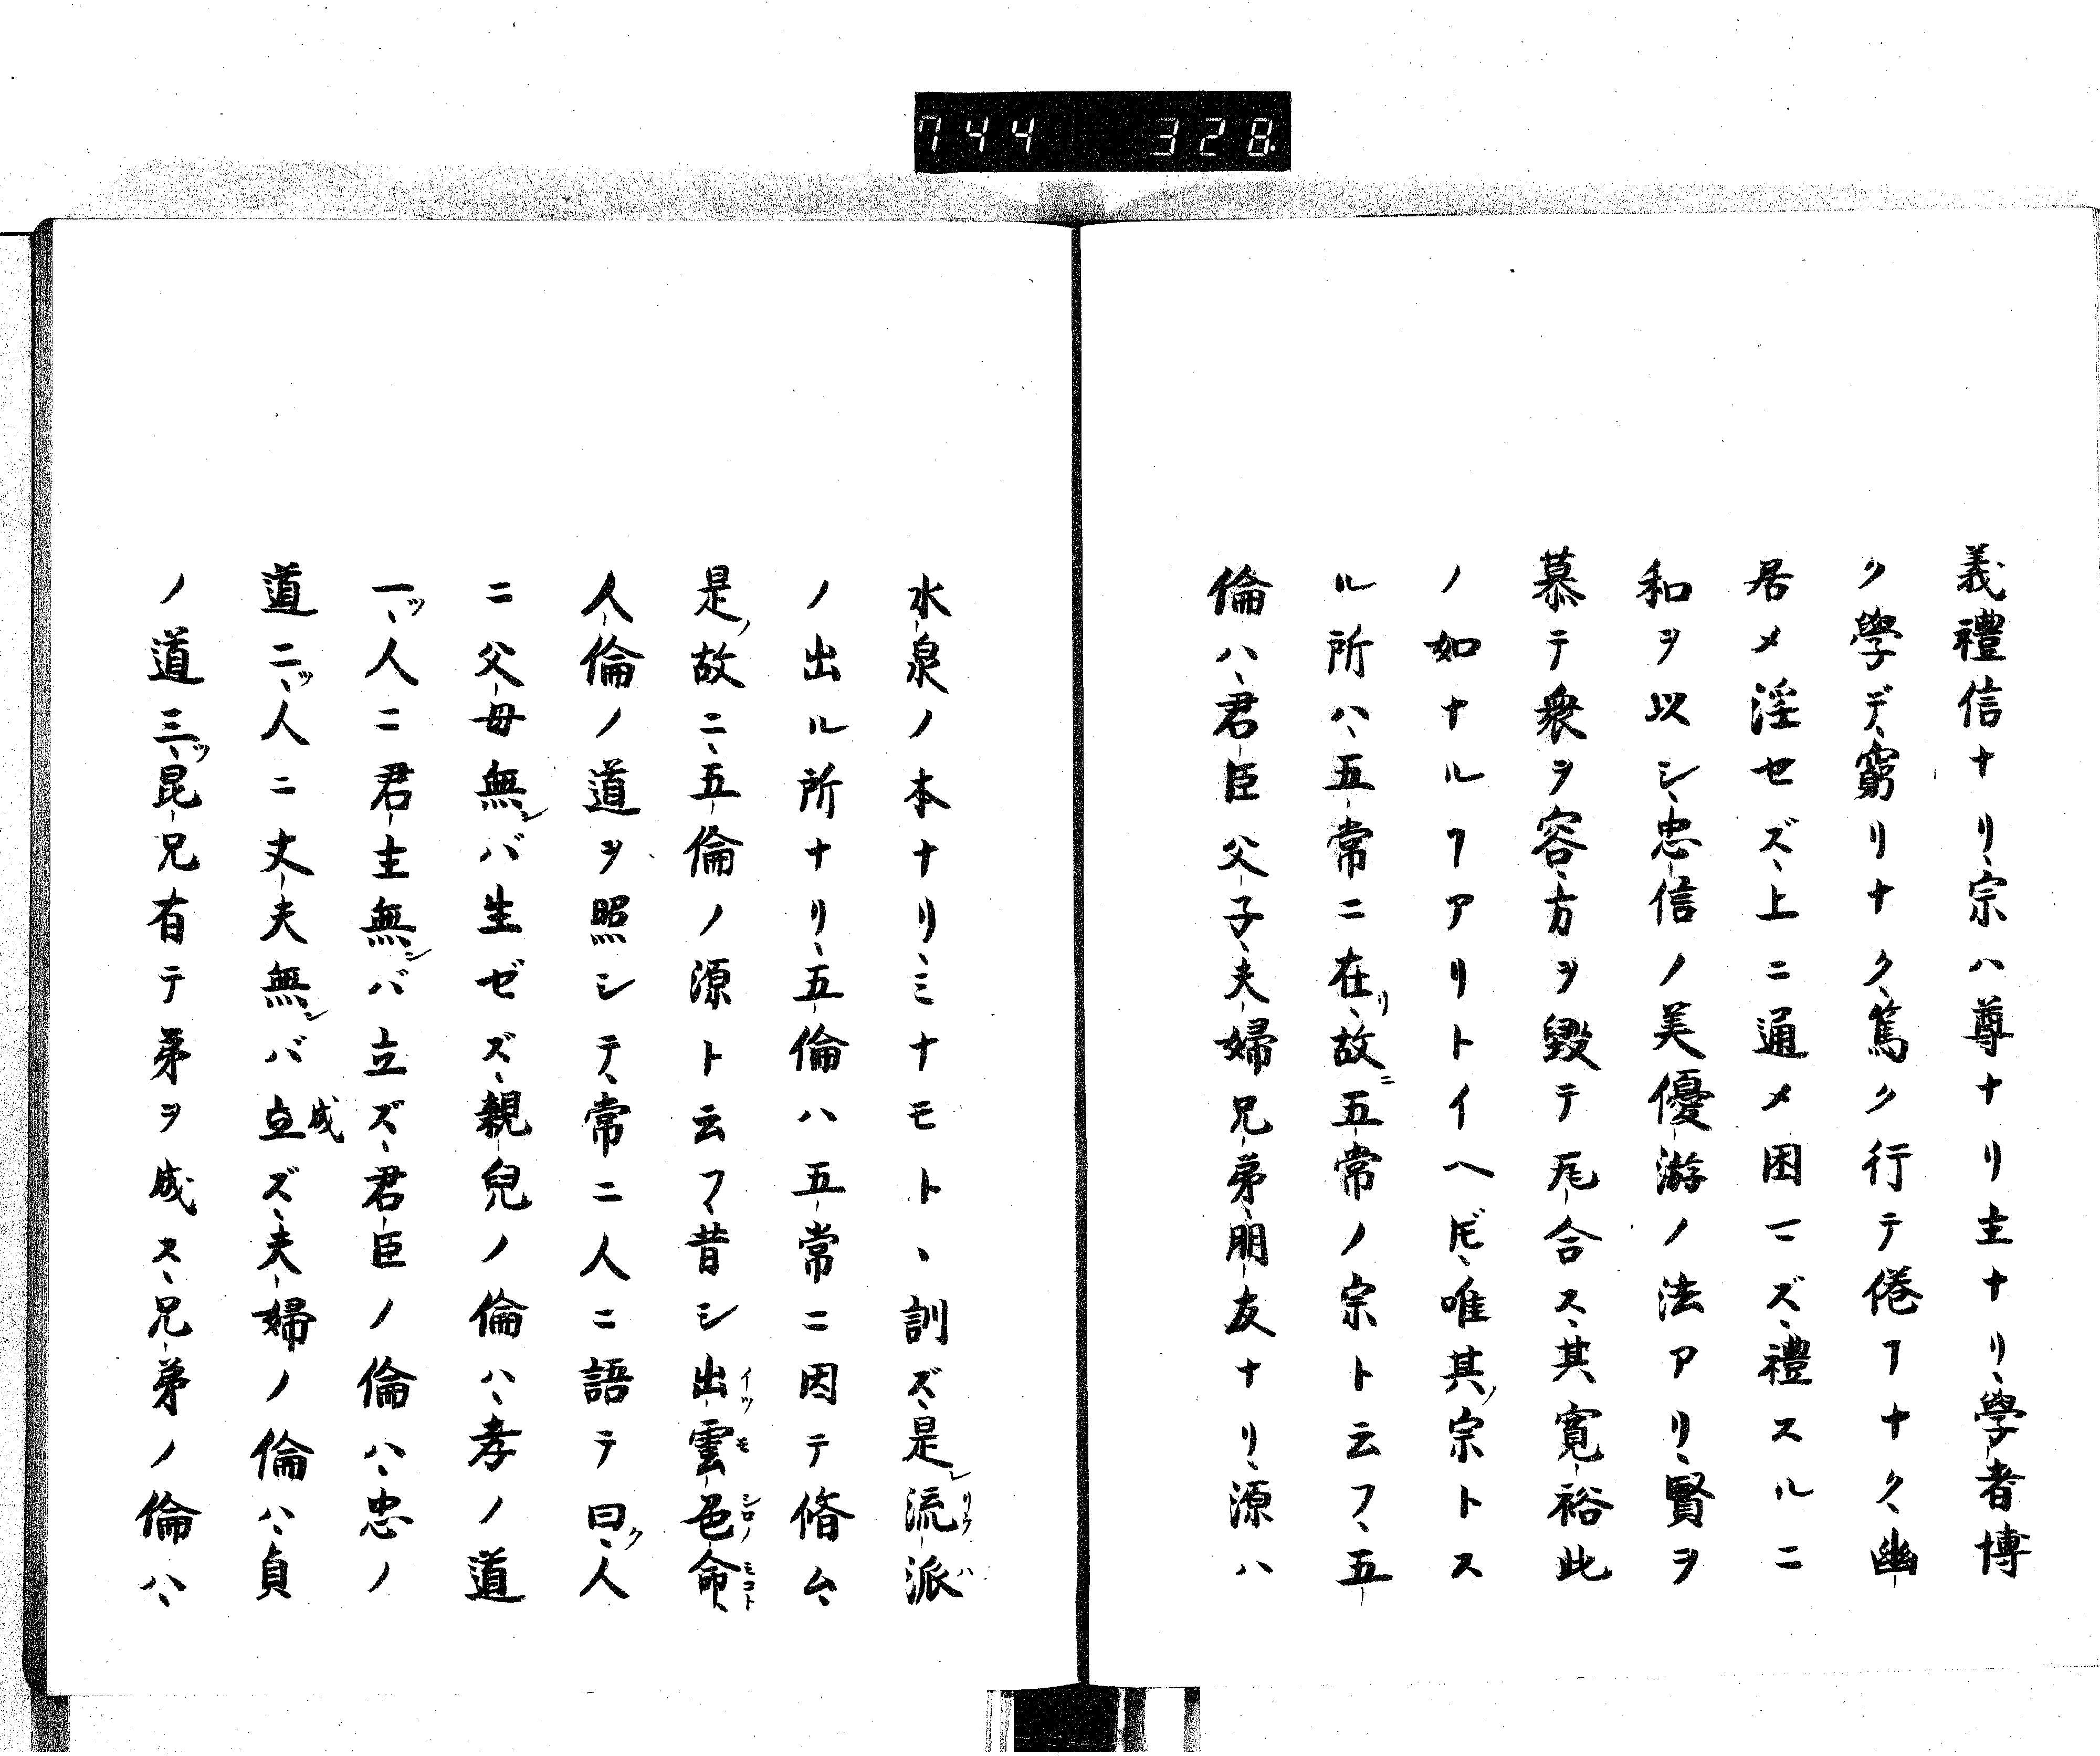 744 328
義禮信ナリ、宗ハ尊ナリ主ナリ、學者博
ク學デ、窮リナク、篤ク行テ倦ヿナク、幽
居メ淫セズ、上ニ通メ困マズ、禮スルニ
和ヲ以シ、忠信ノ美優游ノ法アリ、賢ヲ
慕テ衆ヲ容、方ヲ毀テ瓦合ス、其寛裕此
ノ如ナルヿアリトイヘ𪜈、唯其ノ宗トス
ル所ハ、五常ニ在リ、故ニ五常ノ宗ト云フ、五
倫ハ、君臣父子、夫婦兄弟、朋友ナリ、源ハ
水泉ノ本ナリ、ミナモト、訓ズ、是レ流派
ノ出ル所ナリ、五倫ハ五常ニ因テ脩ム、
是ノ故ニ、五倫ノ源ト云フ、昔シ出雲色命、
人倫ノ道ヲ照シテ、常ニ人ニ語テ曰ク、人
ニ父母無シバ生ゼズ、親兒ノ倫ハ、孝ノ道
一ツ、人ニ君主無シバ立ズ、君臣ノ倫ハ、忠ノ
道二ツ、人ニ丈夫無シバ立ズ、夫婦ノ倫ハ、貞
ノ道三ツ、昆兄有テ弟ヲ成ス、兄弟ノ倫ハ、
イツモシロノモコト
リウハ
成